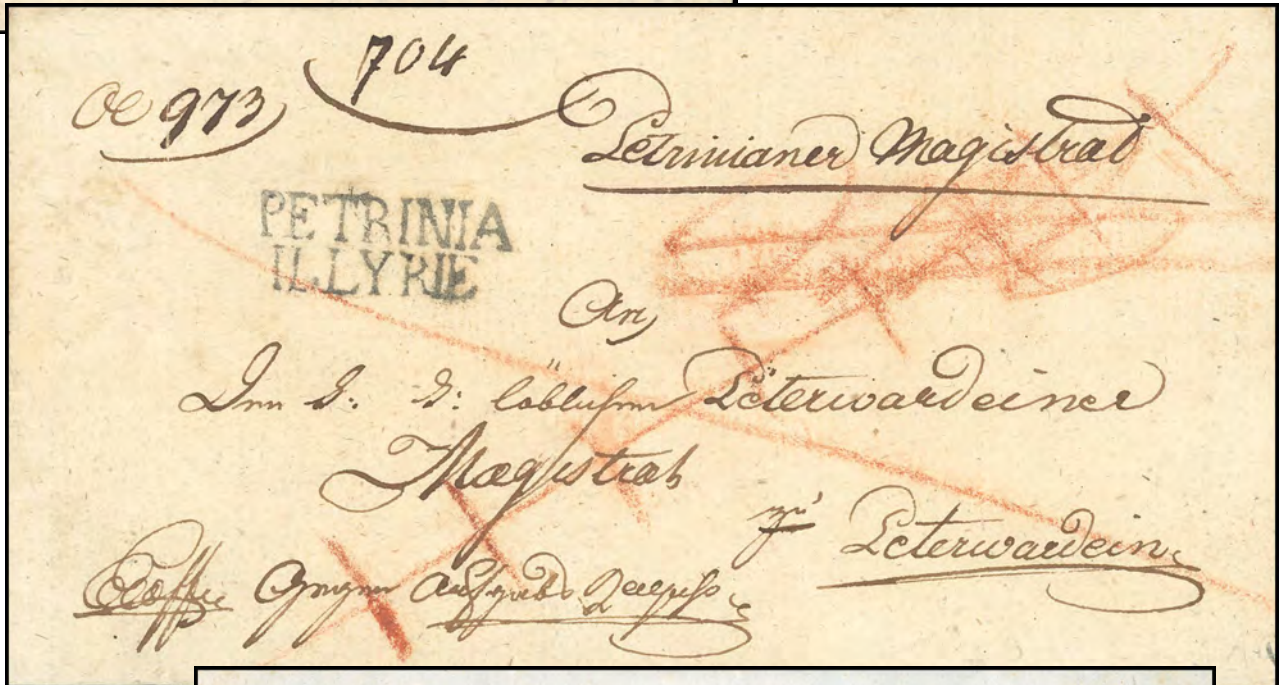 704
973
Petrinianer Magistrat
PETRINIA
ILLYRIE
An
Den löblichen Peterwardeiner
Magistrat
zu Peterwardein
Gegen Aufgabs